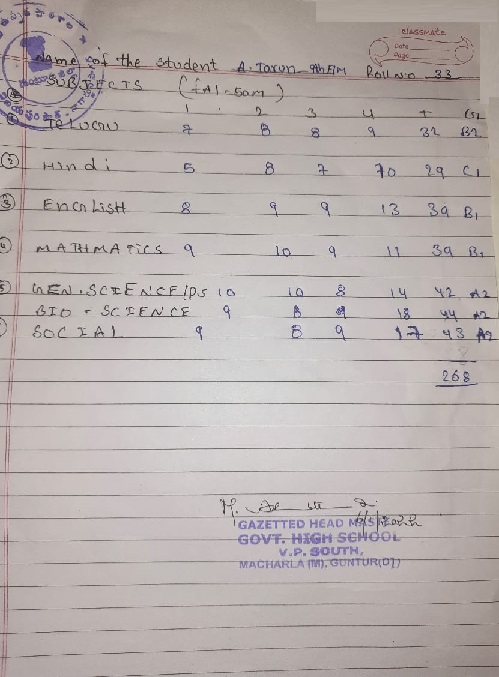 CLASSMATE
Date
Page
Name of the student A. Tarun 9th E/M Roll no 33
SUBJECTS (FA1-50m)
1 2 3 4 T G
TELUGU 7 8 8 9 32 B2
② Hindi 5 8 7 70 29 C1
③ ENGLISH 8 9 9 13 39 B1
MATHMATICS 9 10 9 11 39 B1
5 GEN.SCIENCE/PS 10 10 8 14 42 A2
BIO-SCIENCE 9 8 9 18 44 A2
SOCIAL 9 8 9 17 43 A2
268
GAZETTED HEAD
GOVT. HIGH SCHOOL
V.P. SOUTH,
MACHARLA (M), GUNTUR(DT)